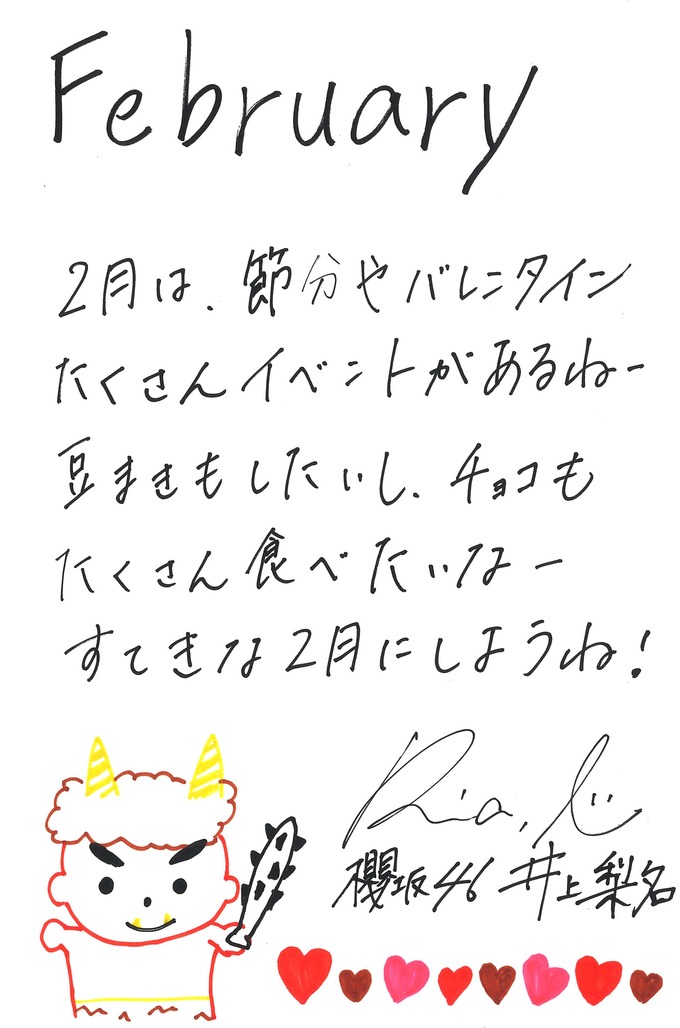 February
2月は、節分やバレンタイン
たくさんイベントがあるねー
豆まきもしたいし、チョコも
たくさん食べたいなー
すてきな2月にしようね!
櫻坂46 井上梨名